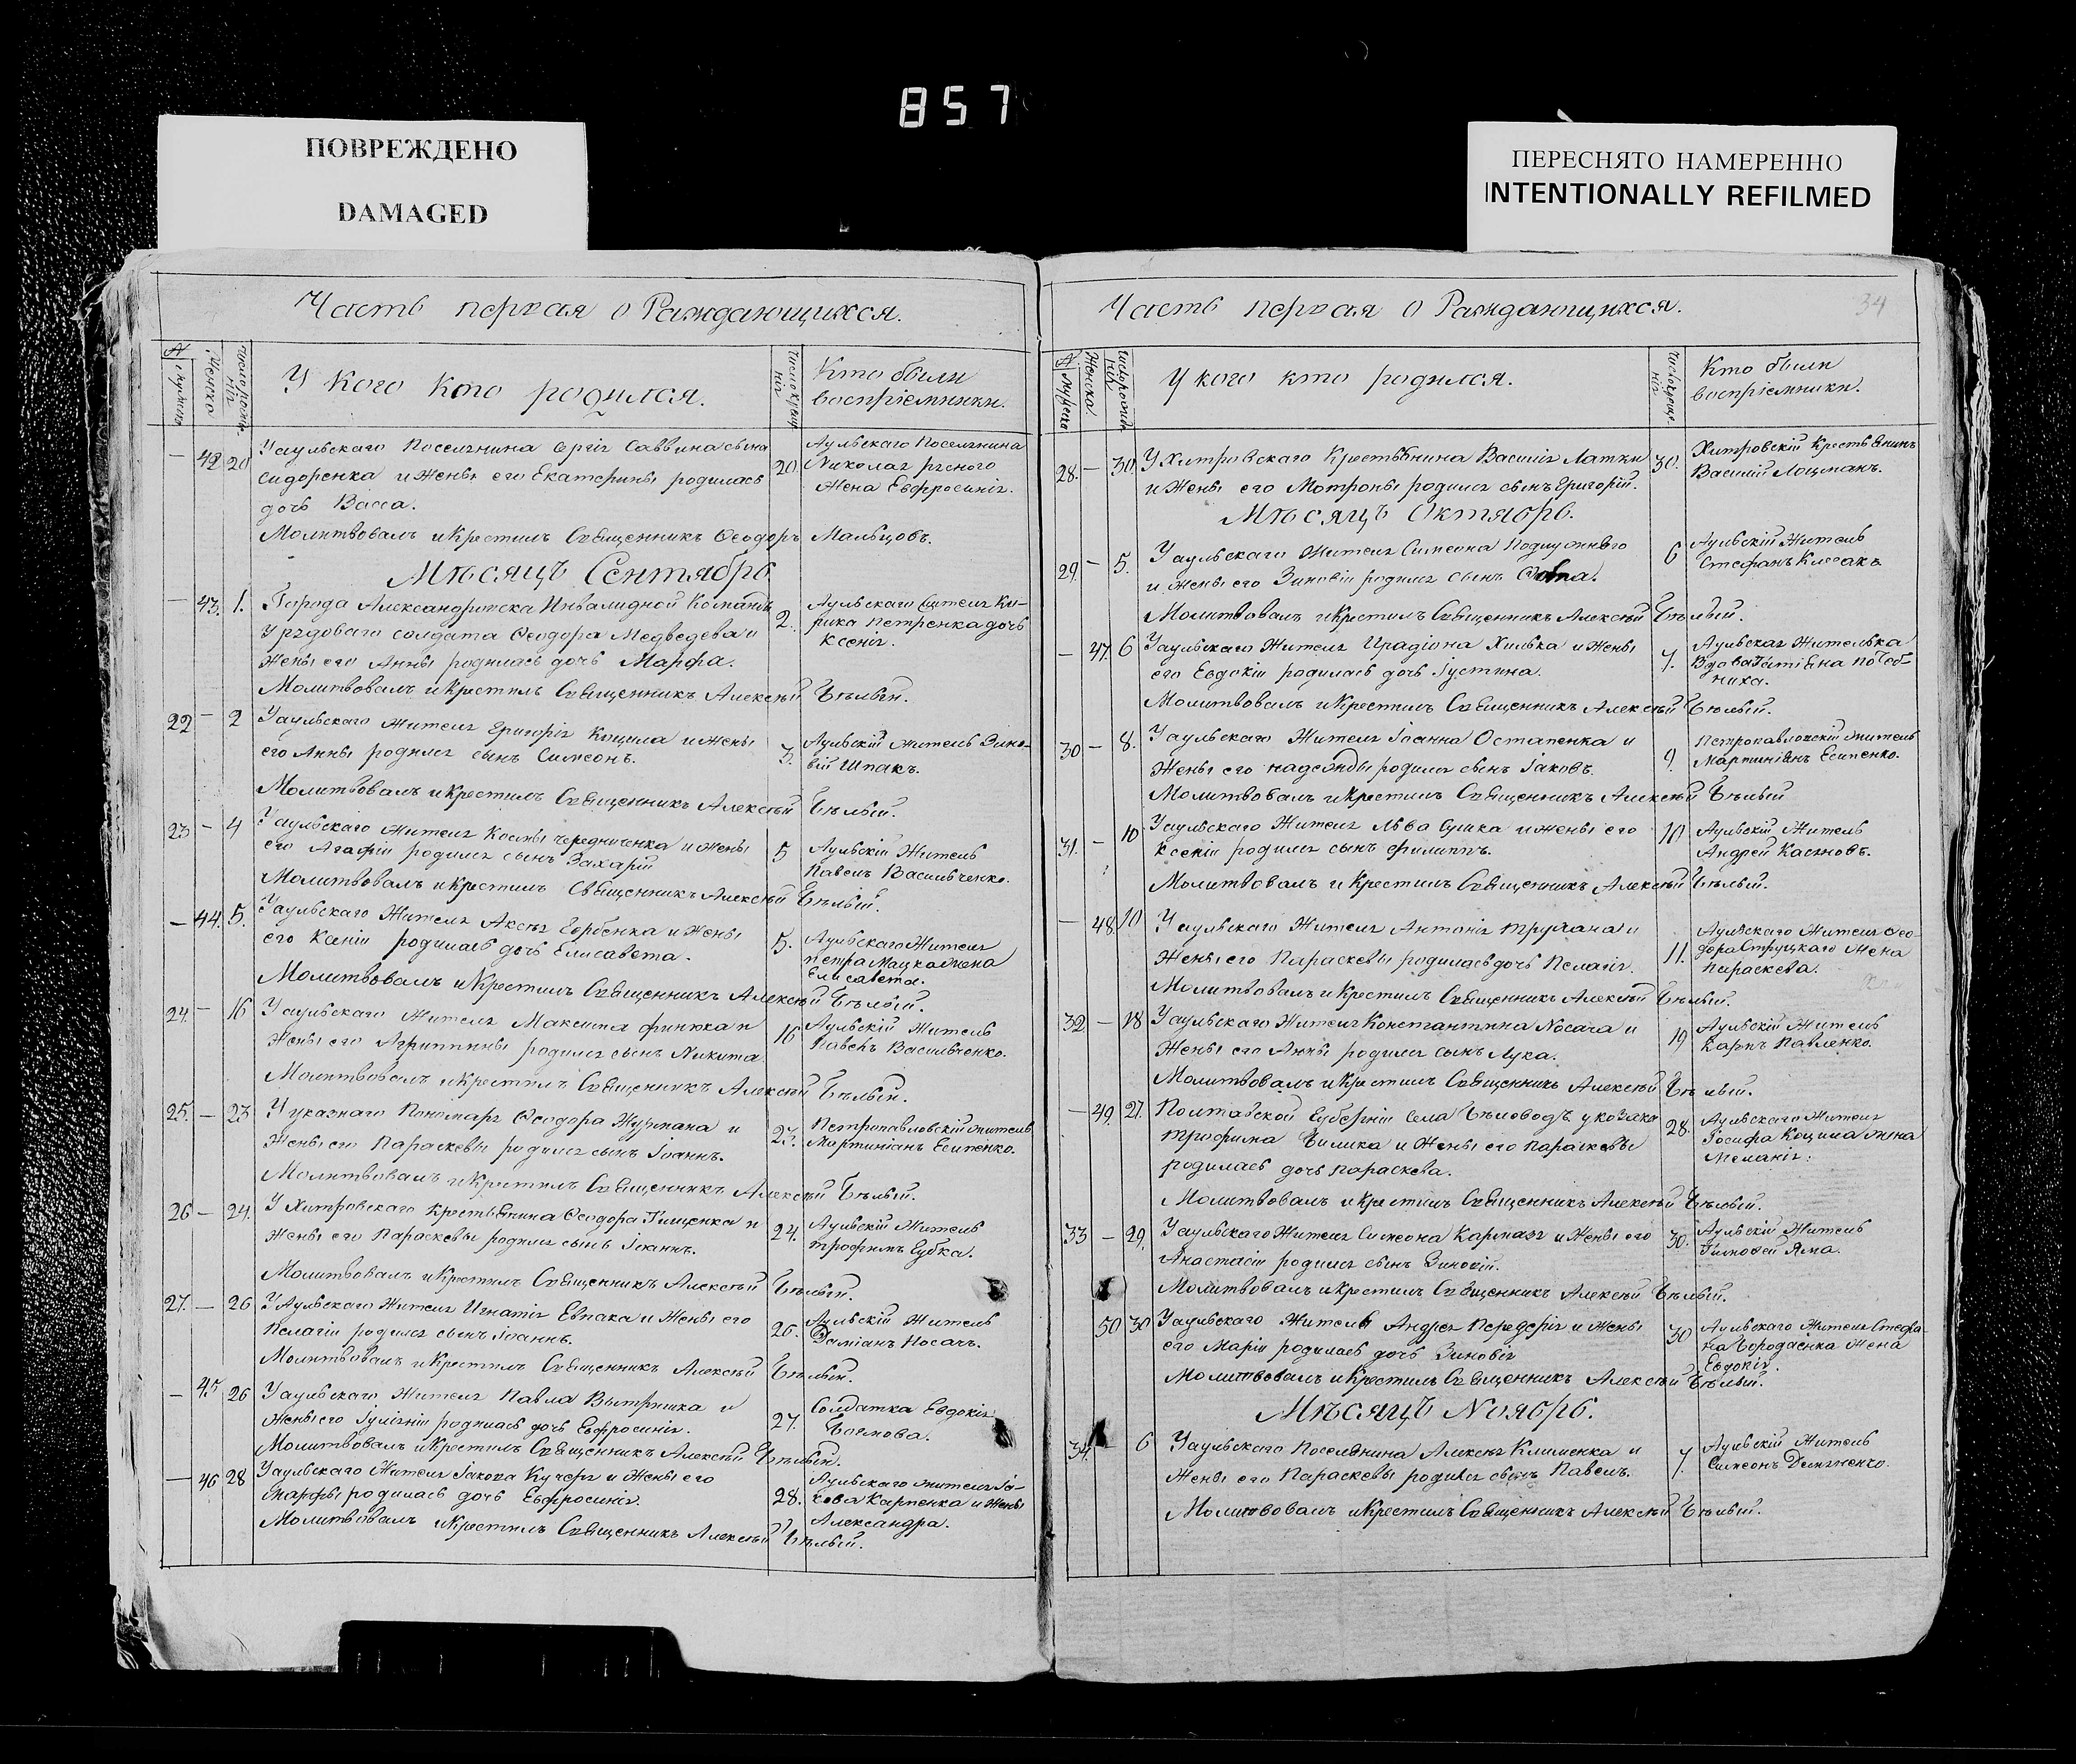 857
ПОВРЕЖДЕНО
DAMAGED
ПЕРЕСНЯТО НАМЕРЕННО
INTENTIONALLY REFILMED
Часть первая о Раждающихся.
У кого кто родился.
Кто были
воспріемники.
— 42 20 Уаульскаго Поселянина Сергія Саввина сына 20 Аульскаго Поселянина
Сидоренка и Жены его Екатерины родилась Николая
дочь Васса. Жена Евфросинія.
Молитвовалъ и Крестилъ Священникъ Ѳеодоръ Мальцовъ.
Мѣсяцъ Сентябрь
— 43. 1. Города Александровска Инвалидной Команды 2. Аульскаго Жителя Ки-
Урядоваго солдата Ѳеодора Медведева и рика Петренка дочь
жены его Анны родилась дочь Марфа. Ксенія.
Молитвовалъ и Крестилъ Священникъ Алексѣй Бѣлый.
22 — 2 Уаульскаго Жителя Григорія Коцила и жены 3. Аульскій житель Зино-
его Анны родился сынъ Симеонъ. вій Шпакъ.
Молитвовалъ и Крестилъ Священникъ Алексѣй Бѣлый.
23 — 4 Уаульскаго жителя Космы чередниченка и жены 5 Аульскій Житель
его Агафіи родился сынъ Захарій Павелъ Васильченко.
Молитвовалъ и Крестилъ Священникъ Алексѣй Бѣлый.
— 44. 5. Уаульскаго Жителя Алексѣя Гербенка и Жены 5. Аульскаго Жителя
его Ксеніи родилась дочь Елисавета. петра Мацка жена
Елисавета.
Молитвовалъ и Крестилъ Священникъ Алексѣй Бѣлый.
24. — 16 Уаульскаго Жителя Максима финюка и 16 Аульскій Житель
Жены его Агриппины родился сынъ Никита Павелъ Васильченко.
Молитвовалъ и Крестилъ Священникъ Алексѣй Бѣлый.
25. — 23 У указнаго Пономаря Ѳеодора Журмана и 23. Петропавловскій житель
Жены его Параскевы родился сынъ Іоаннъ. Мартиніанъ Есипенко.
Молитвовалъ и Крестилъ Священникъ Алексѣй Бѣлый.
26 — 24. У Хитровскаго крестьянина Ѳеодора Гищенка и 24. Аульскій Житель
жены его Параскевы родился сынъ Іоаннъ. трофимъ Губка.
Молитвовалъ и Крестилъ Священникъ Алексѣй Бѣлый.
27. — 26 У Аульскаго Жителя Игнатія Евпака и Жены его 26. Аульскій Житель
Пелагіи родился сынъ Іоаннъ. Даміанъ Носачъ.
Молитвовалъ и Крестилъ Священникъ Алексѣй Бѣлый.
— 45 26 Уаульскаго Жителя Павла Вытришка и 27. Солдатка Евдокія
жены его Іуліяніи родилась дочь Евфросинія. Боянова.
Молитвовалъ и Крестилъ Священникъ Алексѣй Бѣлый.
— 46 28 Уаульскаго Жителя Іакова Кучеря и Жены его 28. Аульскаго жителя Іа-
Марфы родилась дочь Евфросинія. кова Карпенка и Жены
Александра.
Молитвовалъ и Крестилъ Священникъ Алексѣй Бѣлый.
Часть первая о Раждающихся. 34
У кого кто родился.
Кто были
воспріемники.
28. — 30. У Хитровскаго Крестьянина Василія Латки 30. Хитровскій Крестьянинъ
и Жены его Мотроны родился сынъ Григорій. Василій Лоцманъ.
Мѣсяцъ Октябрь.
29. — 5. Уаульскаго Жителя Симеона Подмужняго 6 Аульскій Житель
и жены его Зиновіи родился сынъ Ѳома. Стефанъ Клесакъ
Молитвовалъ и Крестилъ Священникъ Алексѣй Бѣлый.
— 47. 6 Уаульскаго Жителя Ирадіона Хилька и Жены 7. Аульская Жителька
его Евдокіи родилась дочь Іустина. Вдова
ниха.
Молитвовалъ и Крестилъ Священникъ Алексѣй Бѣлый.
30 — 8. Уаульскаго Жителя Іоанна Остапенка и 9. Петропавловскій житель
Жены его надежды родился сынъ Іаковъ. Мартиніянъ Есипенко.
Молитвовалъ и Крестилъ Священникъ Алексѣй Бѣлый
31. — 10 Уаульскаго Жителя Льва Сушка и жены его 10 Аульскій Житель
Ксеніи родился сынъ филиппъ. Андрей Касяновъ.
Молитвовалъ и Крестилъ Священникъ Алексѣй Бѣлый.
— 48 10 Уаульскаго Жителя Антонія трухана и 11. Аульскаго Жителя Ѳео-
Жены его Параскевы родилась дочь Пелагія. дора Струцкаго Жена
параскева.
Молитвовалъ и Крестилъ Священникъ Алексѣй Бѣлый.
32 — 18 Уаульскаго Жителя Константина Носача и 19 Аульскій Житель
Жены его Анны родился сынъ Лука. Карпъ Павленко.
Молитвовалъ и Крестилъ Священникъ Алексѣй Бѣлый.
— 49. 27. Полтавской Губерніи Села Бѣловодъ у козака 28. Аульскаго Жителя
трофима Билика и Жены его Параскевы Іосифа Коцила жена
родилась дочь параскева. Меланія.
Молитвовалъ и Крестилъ Священникъ Алексѣй Бѣлый.
33 — 29. Уаульскаго Жителя Симеона Кармазя и Жены его 30. Аульскій Житель
Анастасіи родился сынъ Зиновій. Тимофей Яма.
Молитвовалъ и Крестилъ Священникъ Алексѣй Бѣлый.
50 30 Уаульскаго Жителя Андрея Передерія и Жены 30 Аульскаго Жителя Стефа-
его Маріи родилась дочь Зиновія на Бородаенка Жена
Евдокія.
Молитвовалъ и Крестилъ Священникъ Алексѣй Бѣлый.
Мѣсяцъ Ноябрь.
34. 6 Уаульскаго Поселянина Алексѣя Клименка и 7. Аульскій Житель
Жены его Параскевы родился сынъ Павелъ. Симеонъ Демяненко.
Молитвовалъ и Крестилъ Священникъ Алексѣй Бѣлый.